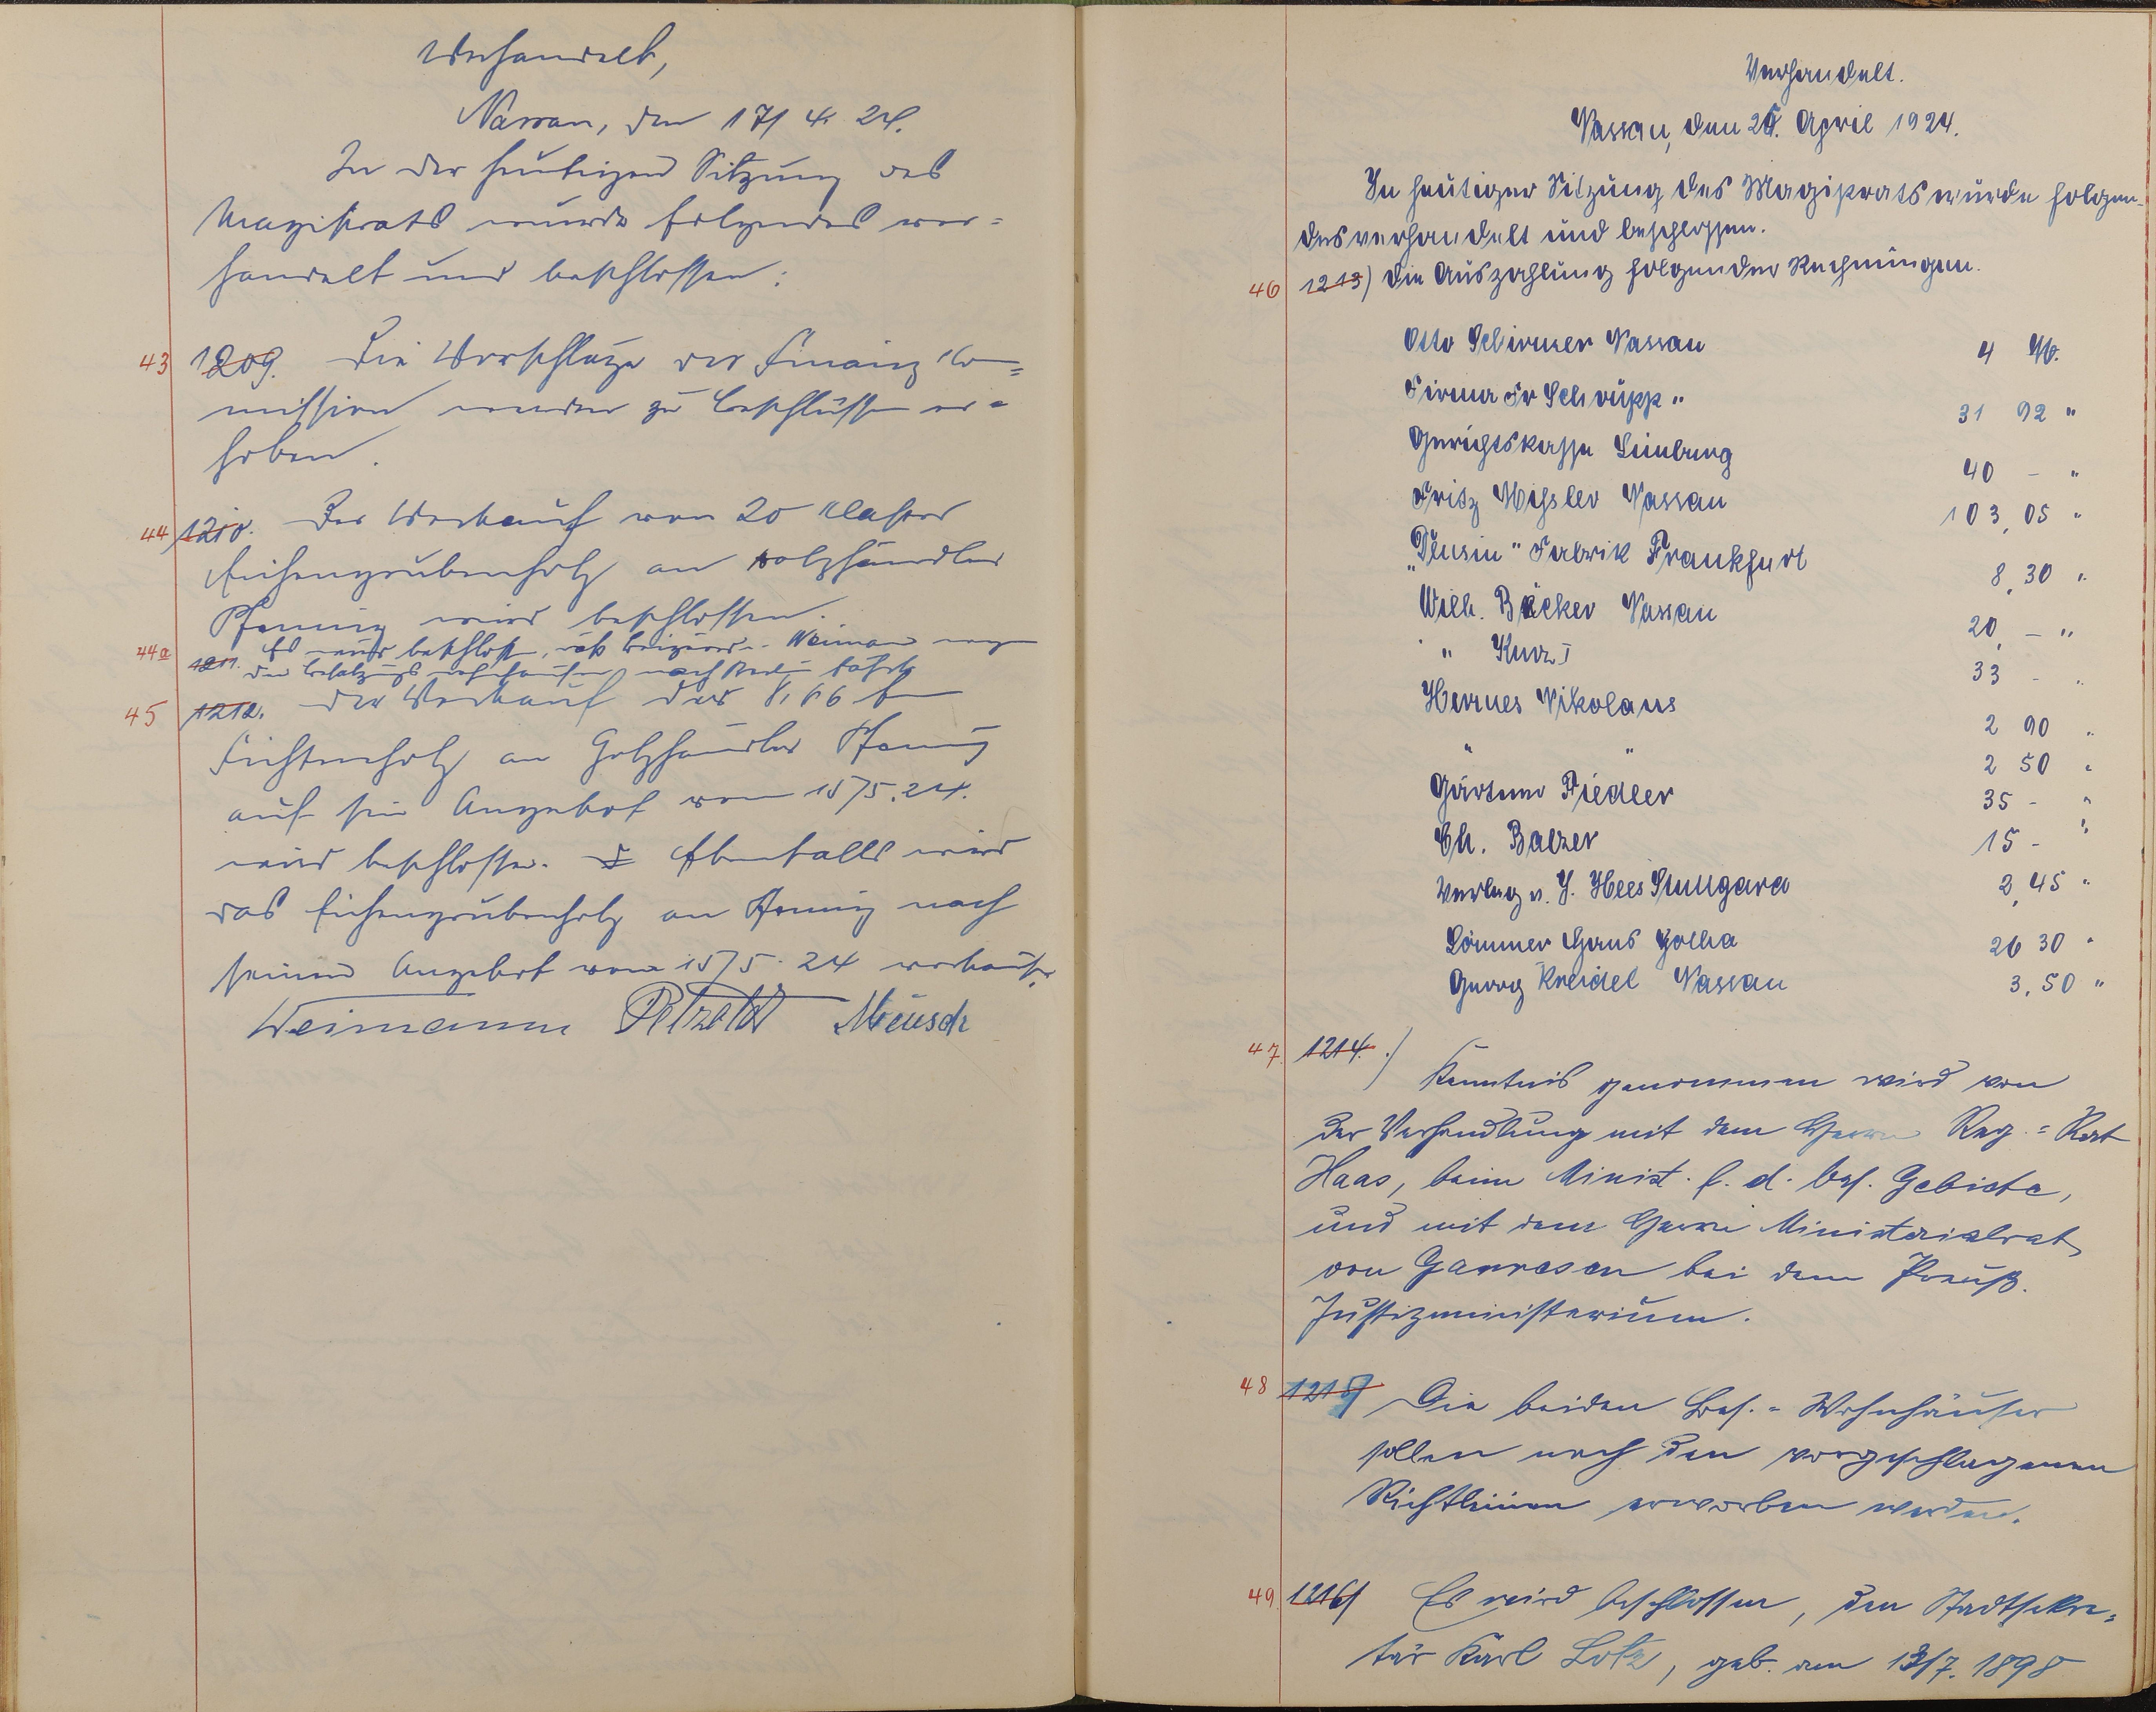 Verhandelt,
Nassau, den 17/4. 24.
In der heutigen Sitzung des
Magistrats wurde folgendes ver=
handelt und beschlossen:
43 1209. Die Vorschläge der Finanzko=
mission werden zu Beschlüssen er=
hoben.
44 1210. Der Verkauf von 20 Klafter
Eichengrubenholz an Holzhändler
Pfennig wird beschlossen.
44a 1211. Es wird beschlossen, daß Weimar
den nach Berlin fährt
45 1212. Der Verkauf der 8,66 fm
Fichtenholz an Holzhändler Pfennig
auf sein Angebot vom 15/5.24.
wird beschlossen. Ebenfalls wird
das Eichengrubenholz an Pfennig nach
seinem Angebot vom 15/5. 24 verkauft.
Weimann Petzold Meusch
Verhandelt.
Nassau, den 25. April 1924.
In heutiger Sitzung des Magistrats wurde folgen-
des verhandelt und beschlossen.
46 1213) Die Auszahlung folgender Rechnungen.
Otto Schirmer Nassau 4 M.
Firma Fr Schrupp " 31 92 "
Gerichtskasse Limburg 40 - "
Fritz Nassau 103,05 "
Fabrik Frankfurt 8,30 "
Wilh. Bäcker Nassau 20, - "
" Kurz I 33 - "
Hermes Nikolaus 2 90 "
" " 2 50 "
Gärtner Fiedler 35 - "
Ch. Balzer 15 - "
Verlag v. J. Hees Stuttgart 2,45 "
Gotha 26 30 "
Georg Kreidel Nassau 3,50 "
47. 1214.) Kenntnis genommen wird von
der Verhandlung mit dem Herrn Reg.=Rat
Haas, beim Minist. f. d. bes. Gebiete,
und mit dem Herrn Ministerialrat
von bei dem Preuß.
Justizministerium.
48 1215) Die beiden Bes.=Wohnhäuser
sollen nach den vorgeschlagenen
Richtlinien erworben werden.
49. 1216) Es wird beschlossen, den Stadtsekre=
tär Karl Lotz, geb. am 13/7. 1898